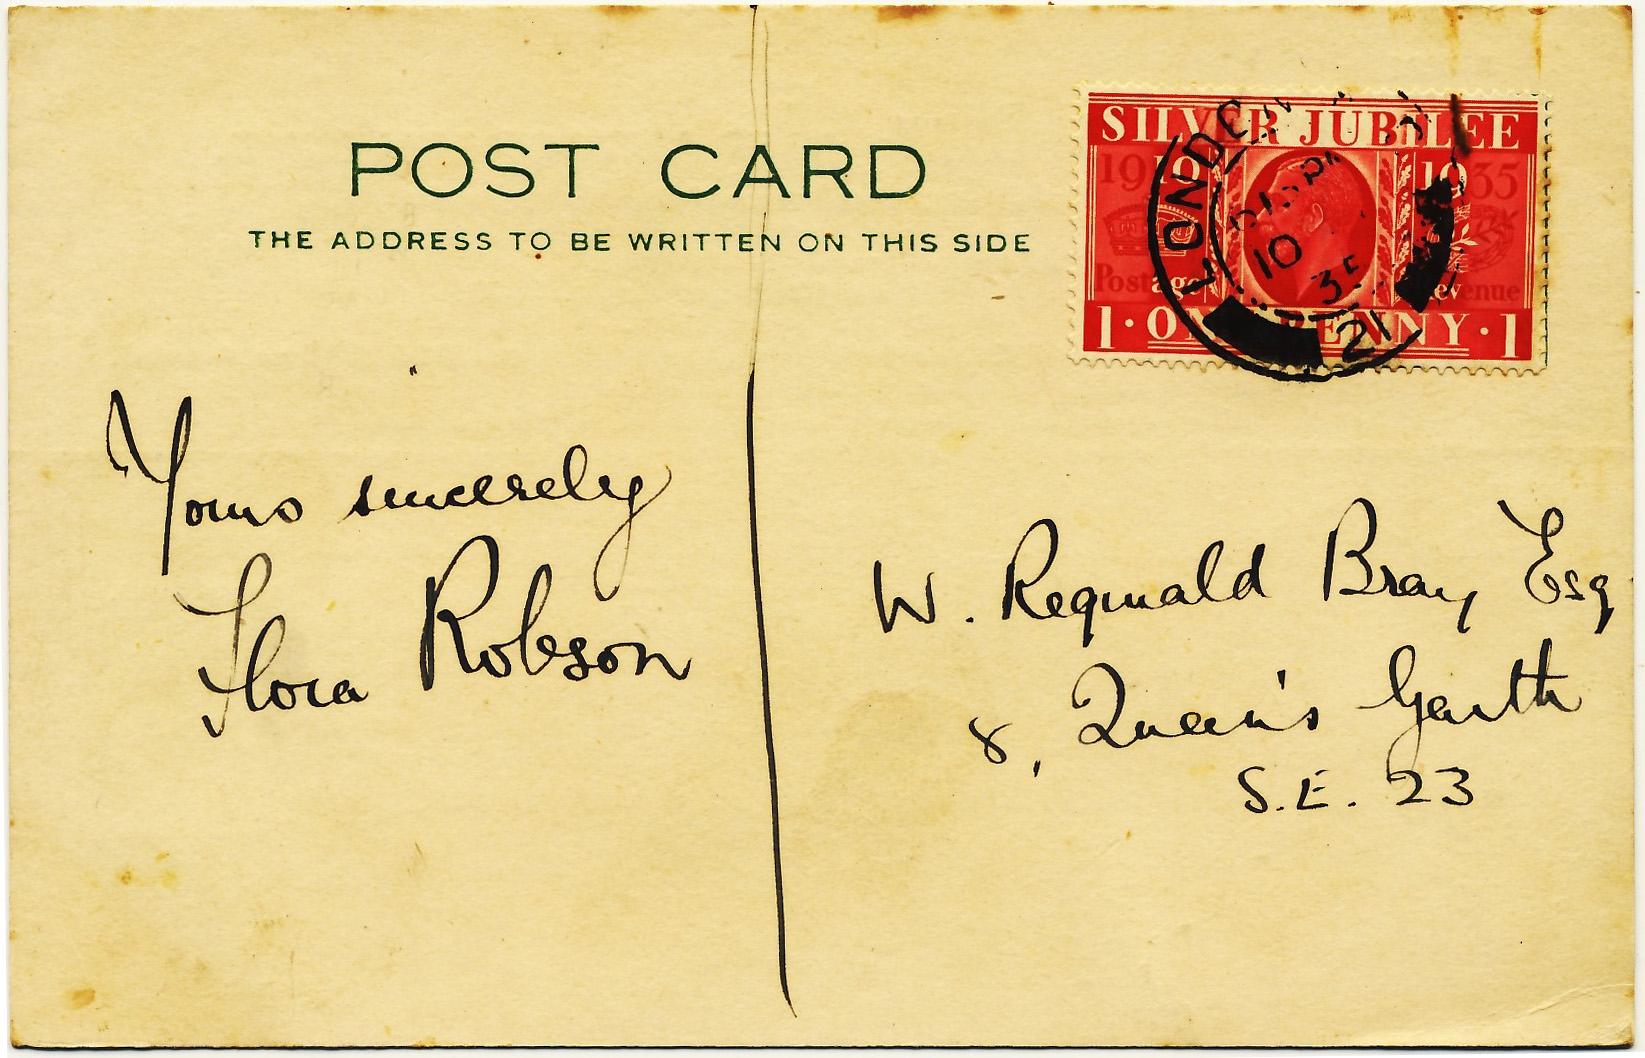 POST CARD
THE ADDRESS TO BE WRITTEN ON THIS SIDE
SILVER JUBILEE
1910 1935
Postage Revenue
1 · ONE PENNY · 1
LONDON
10
35
21
Yours sincerely
Flora Robson
W. Reginald Bray Esq
8, Queen's Garth
S.E. 23